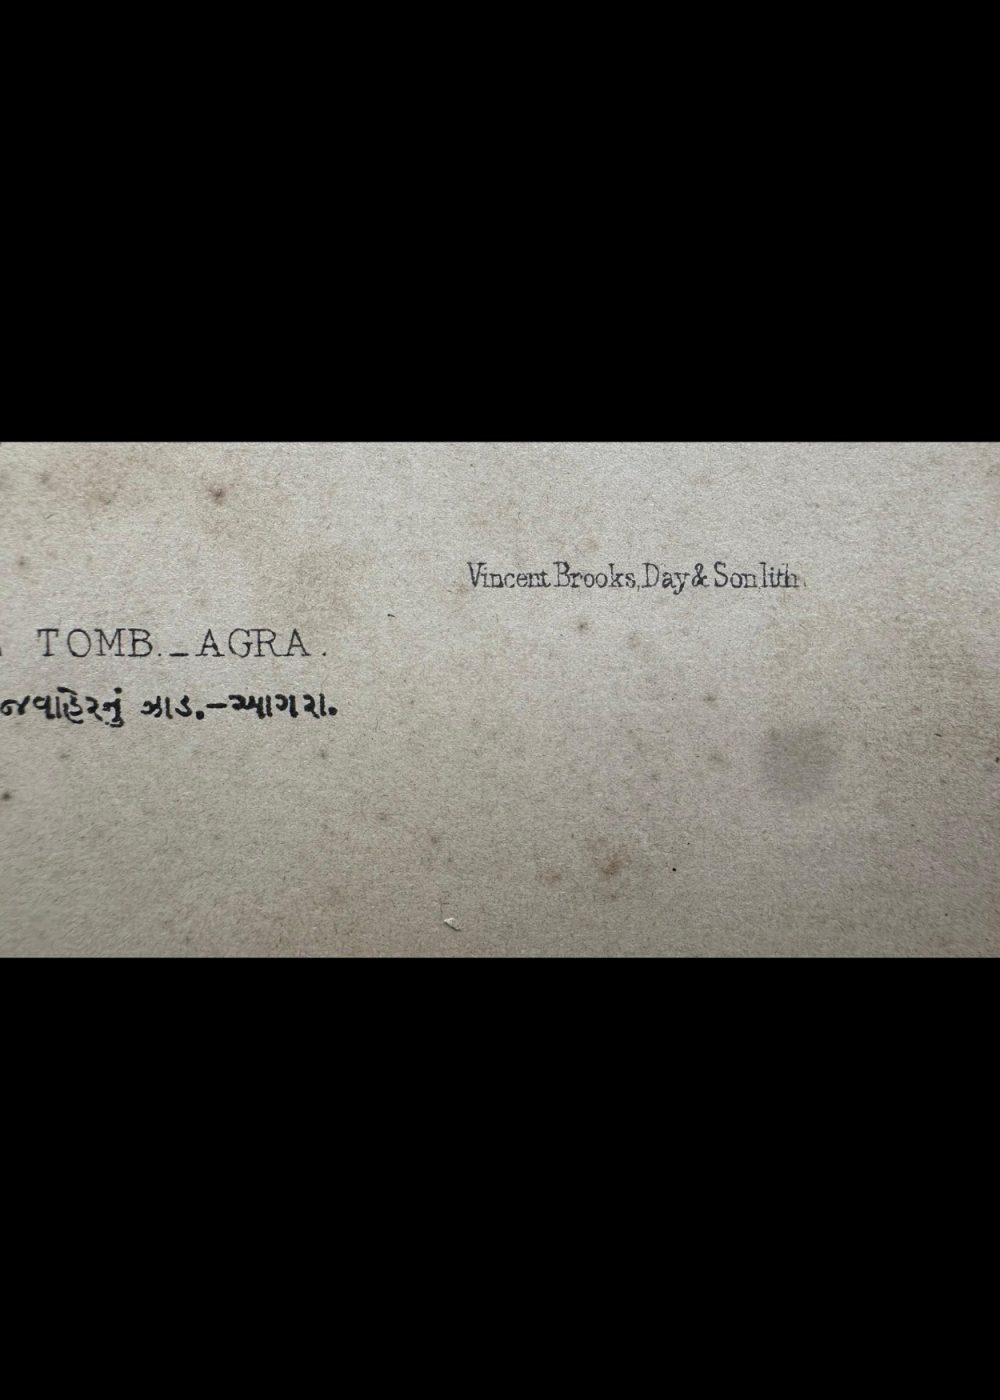 Vincent Brooks, Day & Son, lith.
TOMB._AGRA.
જવાહેરનું ઝાડ.—આગરા.